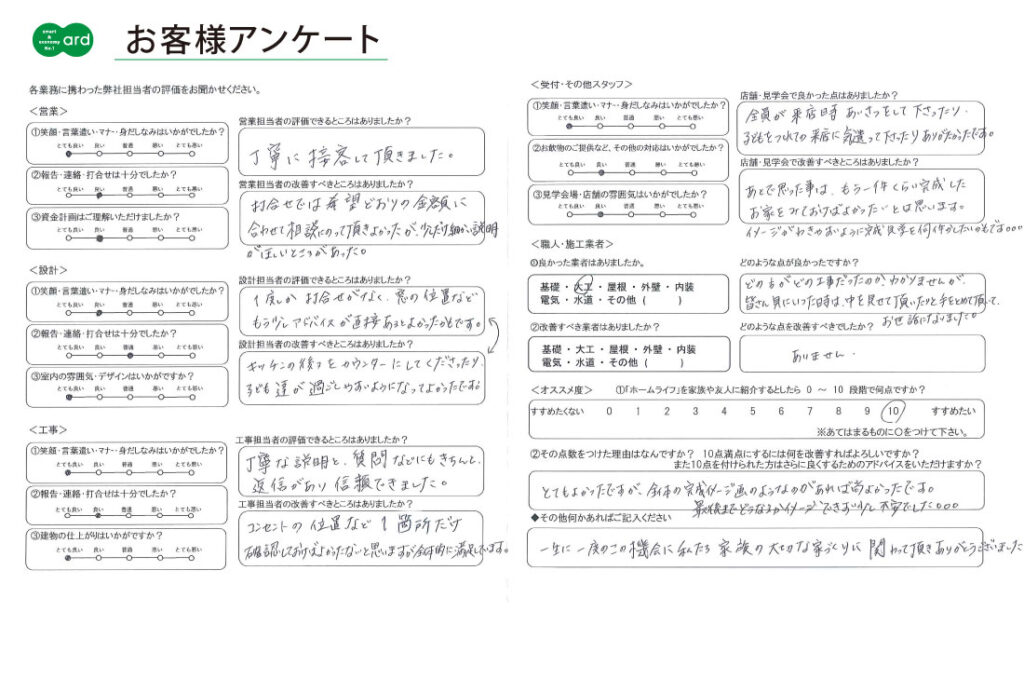 smart
&
economy
No.1
ard
お客様アンケート
各業務に携わった弊社担当者の評価をお聞かせください。
＜営業＞
①笑顔・言葉遣い・マナー・身だしなみはいかがでしたか？
とても良い 良い 普通 悪い とても悪い
②報告・連絡・打合せは十分でしたか？
とても良い 良い 普通 悪い とても悪い
③資金計画はご理解いただけましたか？
とても良い 良い 普通 悪い とても悪い
営業担当者の評価できるところはありましたか？
丁寧に接客して頂きました。
営業担当者の改善すべきところはありましたか？
打合せでは希望どおりの金額に
合わせて相談にのって頂きよかったが、少しだけ細かい説明
がほしいところがあった。
＜設計＞
①笑顔・言葉遣い・マナー・身だしなみはいかがでしたか？
とても良い 良い 普通 悪い とても悪い
②報告・連絡・打合せは十分でしたか？
とても良い 良い 普通 悪い とても悪い
③室内の雰囲気・デザインはいかがですか？
とても良い 良い 普通 悪い とても悪い
設計担当者の評価できるところはありましたか？
1度しか打合せがなく、窓の位置など
もう少しアドバイスが直接あるとよかったかもです。
設計担当者の改善すべきところはありましたか？
キッチンの後ろをカウンターにしてくださったり、
子ども達が過ごしやすいようになってよかったです。
＜工事＞
①笑顔・言葉遣い・マナー・身だしなみはいかがでしたか？
とても良い 良い 普通 悪い とても悪い
②報告・連絡・打合せは十分でしたか？
とても良い 良い 普通 悪い とても悪い
③建物の仕上がりはいかがですか？
とても良い 良い 普通 悪い とても悪い
工事担当者の評価できるところはありましたか？
丁寧な説明と、質問などにもきちんと、
返信があり信頼できました。
工事担当者の改善すべきところはありましたか？
コンセントの位置など1箇所だけ
確認しておけばよかったなと思いますが全体的に満足しています。
＜受付・その他スタッフ＞
①笑顔・言葉遣い・マナー・身だしなみはいかがでしたか？
とても良い 良い 普通 悪い とても悪い
②お飲物のご提供など、その他の対応はいかがでしたか？
とても良い 良い 普通 悪い とても悪い
③見学会場・店舗の雰囲気はいかがでしたか？
とても良い 良い 普通 悪い とても悪い
店舗・見学会で良かった点はありましたか？
全員が来店時あいさつをして下さったり、
子どもをつれての来店に気遣って下さったりありがたかったです。
店舗・見学会で改善すべきところはありましたか？
あとで思った事は、もう一件くらい完成した
お家をみておけばよかったなとは思います。
イメージがわきやすいように完成見学を何件かしたいかもです。。。
＜職人・施工業者＞
①良かった業者はありましたか。
基礎 ・ 大工 ・ 屋根 ・ 外壁 ・ 内装
電気 ・ 水道 ・ その他（ ）
どのような点が良かったですか？
どのかたがどの工事だったのか、わかりませんが、
皆さん見にいった時は、中を見せて頂いたりと手をとめて頂いて、
お世話になりました。
②改善すべき業者はありましたか？
基礎 ・ 大工 ・ 屋根 ・ 外壁 ・ 内装
電気 ・ 水道 ・ その他（ ）
どのような点を改善すべきでしたか？
ありません。
＜オススメ度＞ ①「ホームライフ」を家族や友人に紹介するとしたら 0 ～ 10 段階で何点ですか？
すすめたくない 0 1 2 3 4 5 6 7 8 9 10 すすめたい
※あてはまるものに○をつけて下さい。
②その点数をつけた理由はなんですか？ 10点満点にするには何を改善すればよろしいですか？
また10点を付けられた方はさらに良くするためのアドバイスをいただけますか？
とてもよかったですが、全体の完成イメージ画のようなのがあれば尚よかったです。
最後までどうなるかイメージできず少し不安でした。。。
◆その他何かあればご記入ください
一生に一度のこの機会に私たち家族の大切な家づくりに関わって頂きありがとうございました